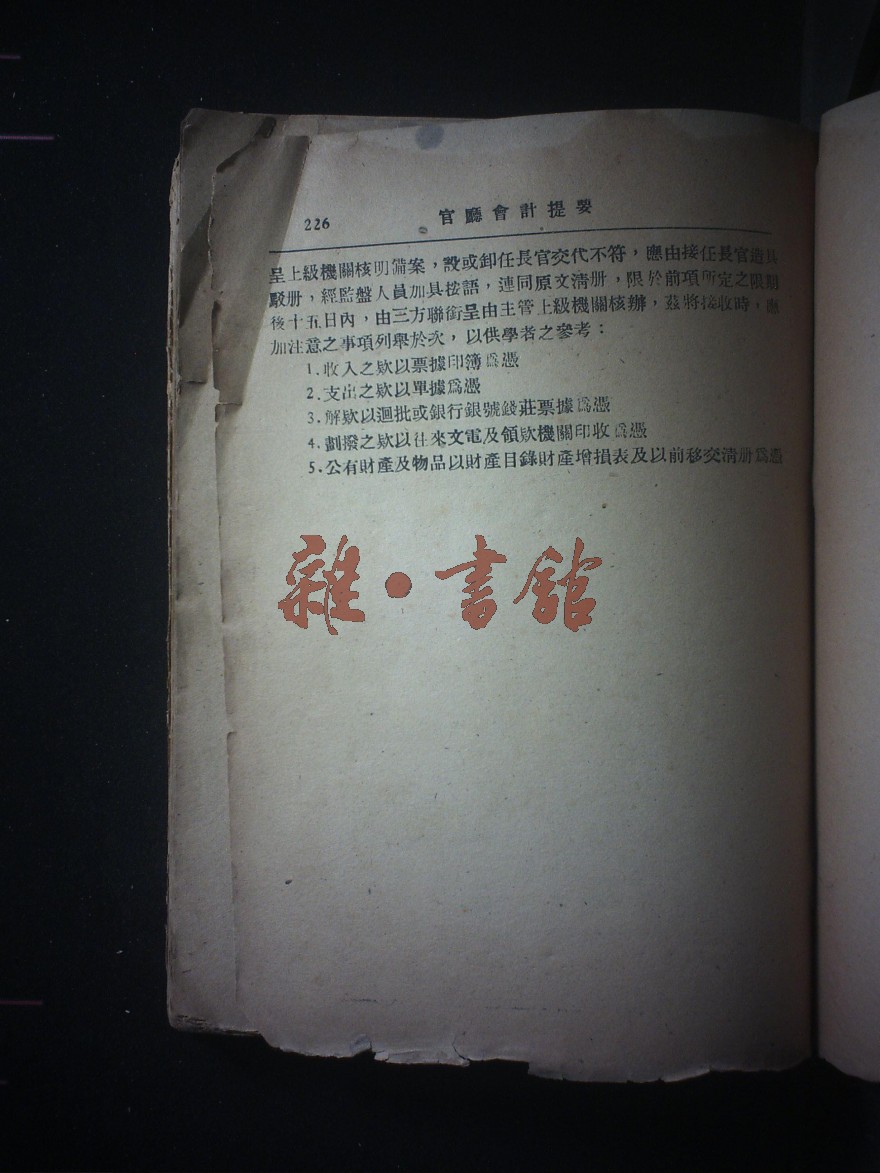 226
官廳會計提要
呈上級機關核明備案，設或卸任長官交代不符，應由接任長官造具
駁册，經監盤人員加具按語，連同原文淸册，限於前項所定之限期
後十五日內，由三方聯銜呈由主管上級機關核辦，茲將接收時，應
加注意之事項列舉於次，以供學者之參考：
1.收入之欵以票據印簿爲憑
2.支出之欵以單據爲憑
3.解欵以迴批或銀行銀號錢莊票據爲憑
4.劃撥之欵以往來文電及領欵機關印收爲憑
5.公有財產及物品以財產目錄財產增損表及以前移交淸册爲憑
雜·書館